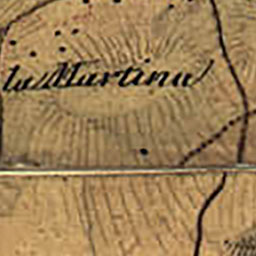 la Martina